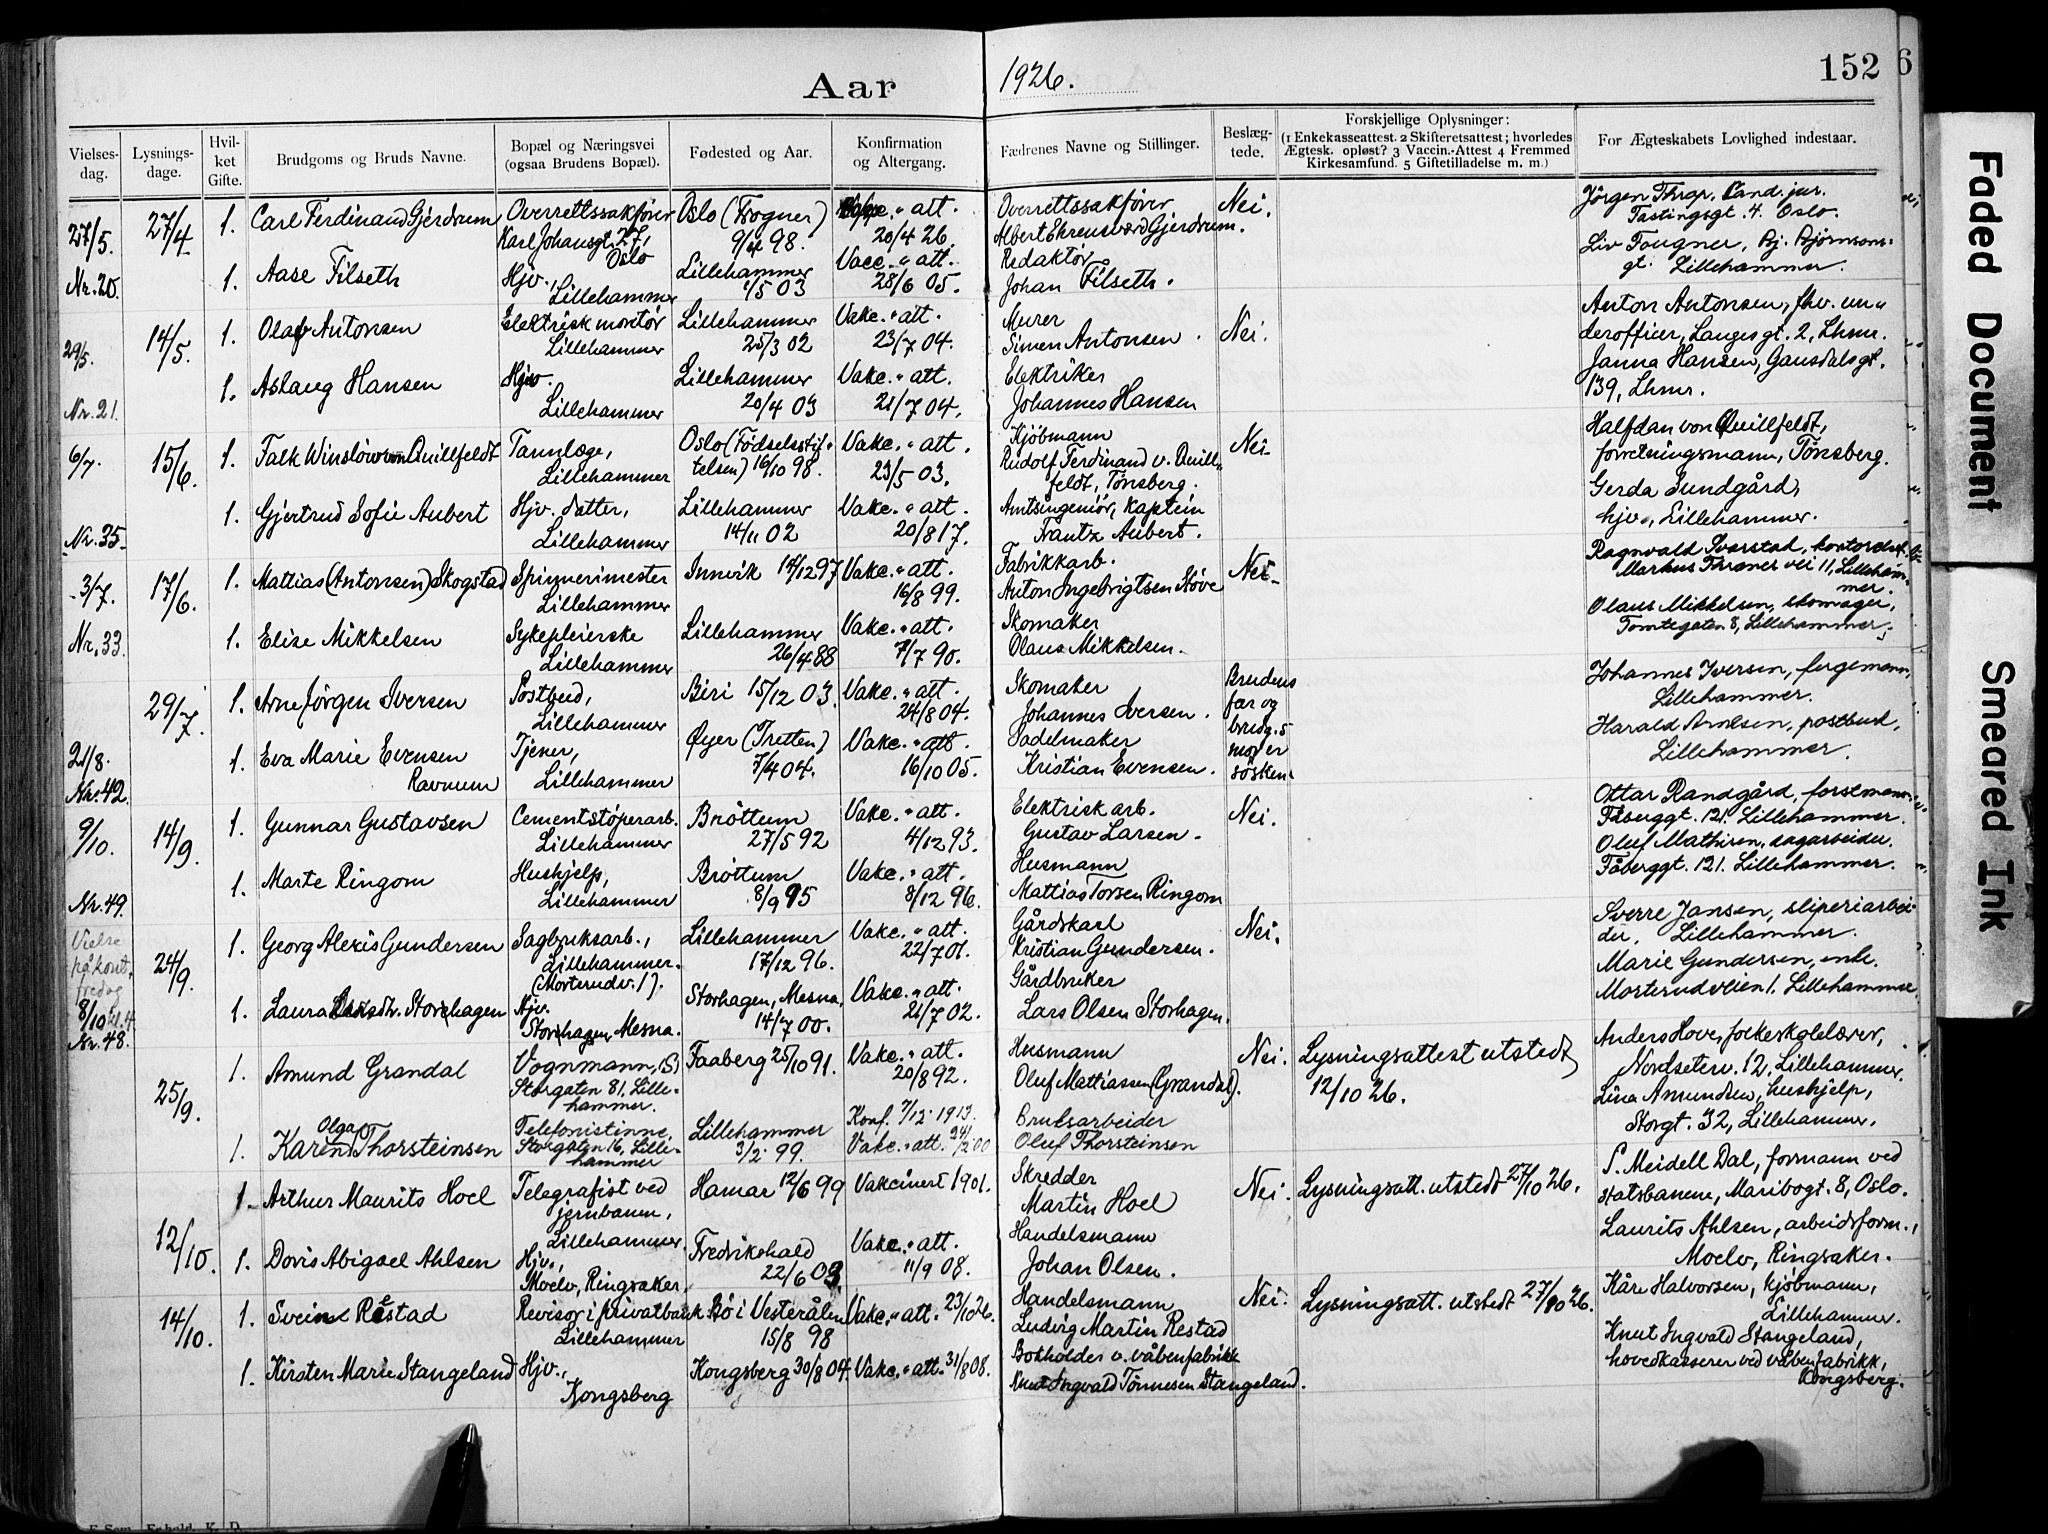 Aar 1926. 152 6
Vielses-dag. Lysnings-dage. Hvil-ket Gifte. Brudgoms og Bruds Navne. Bopæl og Næringsvei (ogsaa Brudens Bopæl). Fødested og Aar. Konfirmation og Altergang. Fædrenes Navne og Stillinger. Beslæg-tede. Forskjellige Oplysninger: (1 Enkekasseattest. 2 Skifteretsattest; hvorledes Ægtesk. opløst? 3 Vaccin.-Attest 4 Fremmed Kirkesamfund. 5 Giftetilladelse m. m.) For Ægteskabets Lovlighed indestaar.
27/5. 27/4 1. Carl Ferdinand Gjerdrum Overrettssakfører Karl Johansgt. 27, Oslo Oslo (Frogner) 9/4 98. Vakc. " att. 20/4 26. Overrettssakfører Albert Ehrensværd Gjerdrum. Nei. Jørgen Thrap. Cand. jur. Tastingsgt. 4. Oslo.
Nr. 20. 1. Aase Filseth Hjv., Lillehammer Lillehammer 1/5 03 Vacc. " att. 28/6 05. Redaktør Johan Filseth. Liv Fougner, Bj. Bjørnsons-gt. Lillehammer.
29/5. 14/5. 1. Olaf Antonsen Elektrisk montør Lillehammer Lillehammer 25/3 02 Vakc. " att. 23/7 04. Murer Simen Antonsen. Nei. Anton Antonsen, fhv. un-deroffiser, Langes gt. 2, Lhmr.
Nr. 21. 1. Aslaug Hansen Hjv. Lillehammer Lillehammer 20/4 03 Vakc. " att. 21/7 04. Elektriker Johannes Hansen Janna Hansen, Gausdalsgt. 139, Lhmr.
6/7 15/6. 1. Falk Winsløw von Quillfeldt Tannlæge, Lillehammer Oslo (Fødselsstif-telsen) 16/10 98. Vakc. " att. 23/5 03. Kjøbmann Rudolf Ferdinand v. Quill-feldt, Tønsberg. Nei Halfdan von Quillfeldt, forretningsmann, Tønsberg.
Nr. 35 1. Gjertrud Sofie Aubert Hjv. datter, Lillehammer Lillehammer 14/11 02 Vakc. " att. 20/8 17. Amtsingeniør, Kaptein Frantz Aubert. Gerda Sundgård, hjv., Lillehammer.
3/7. 17/6. 1. Mattias (Antonsen) Skogstad Spinnerimester Lillehammer Innvik 14/12 97 Vakc. " att. 16/8 99. Fabrikkarb. Anton Ingebrigtsen Støve Nei Ragnvald Svarstad, kontorchef. Markus Thranes vei 11, Lilleham-mer.
Nr. 33. 1. Elise Mikkelsen Sykepleierske Lillehammer Lillehammer 26/4 88 Vakc. " att. 7/7 90. Skomaker Olaus Mikkelsen. Olaus Mikkelsen, skomager, Tomtegaten 8, Lillehammer.
29/7. 1. Arne Jørgen Iversen Postbud, Lillehammer Biri 15/12 03. Vakc. " att. 24/8 04. Skomaker Johannes Iversen. Brudens far og brudg.s mor er søsken. Johannes Iversen, fergemann, Lillehammer.
21/8. Nr. 42. 1. Eva Marie Evensen Ravnum Tjener, Lillehammer Øyer (Tretten) 7/4 04. Vakc. " att. 16/10 05. Sadelmaker Kristian Evensen. Harald Arnesen, postbud, Lillehammer.
9/10. 14/9. 1. Gunnar Gustavsen Cementstøperarb. Lillehammer Brøttum 27/5 92 Vakc. " att. 4/12 93. Elektrisk arb. Gustav Larsen. Nei. Ottar Randgård, forstmann. Fåberggt. 121. Lillehammer.
Nr. 49. 1. Marte Ringom Hushjelp, Lillehammer Brøttum 8/9 95 Vakc. " att. 8/12 96. Husmann Mattias Torsen Ringom Oluf Mathisen, sagarbeider. Fåberggt. 121. Lillehammer.
Vielse på kont. fredag 24/9. 1. Georg Alexis Gundersen Sagbruksarb., Lillehammer. (Morterudv. 1). Lillehammer 17/12 96. Vakc. " att. 22/7 01. Gårdskarl Kristian Gundersen. Nei. Sverre Jansen, sliperiarbei-der. Lillehammer.
8/10 kl. 4 Nr. 48. 1. Laura Larsdtr. Storhagen Hjv. Storhagen, Mesna. Storhagen, Mesna. 14/7 00. Vakc. " att. 21/7 02. Gårdbruker Lars Olsen Storhagen. Marie Gundersen, enke. Morterudveien 1. Lillehammer
25/9. 1. Amund Grandal Vognmann, (S) Storgaten 81, Lille-hammer. Faaberg 25/10 91. Vakc. " att. 20/8 92. Husmann Oluf Mattiassen (Grandal). Nei. Lysningsattest utstedt 12/10 26. Anders Hove, folkeskolelærer, Nordseterv. 12, Lillehammer.
1. Karen Olga Thorsteinsen Telefonistinne, Storgaten 16, Lille-hammer Lillehammer 3/2 99. Konf. 7/12 1913. Vakc. " att. 24/2 00 Bruksarbeider Oluf Thorsteinsen Lina Amundsen, hushjelp, Storgt. 32, Lillehammer.
12/10. 1. Arthur Maurits Hoel Telegrafist ved jernbanen, Lillehammer Hamar 12/6 99 Vakcinert 1901. Skredder Martin Hoel Nei. Lysningsatt. utstedt 27/10 26. S. Meidell Dal, formann ved statsbanene, Maribogt. 8, Oslo.
1. Doris Abigael Ahlsen Hjv., Moelv, Ringsaker, Fredrikshald 22/6 03. Vakc. " att. 11/9 08. Handelsmann Johan Olsen. Laurits Ahlsen, arbeidsform., Moelv, Ringsaker.
14/10. 1. Svein Restad Revisor i privatbank Lillehammer Bø i Vesterålen 15/8 98 Vakc. " att. 23/10 26. Handelsmann Ludvig Martin Restad Nei. Lysningsatt. utstedt 27/10 26. Kåre Halvorsen, kjøbmann, Lillehammer.
1. Kirsten Marie Stangeland Hjv., Kongsberg Kongsberg 30/8 04. Vakc. " att. 31/8 08. Bokholder v. våbenfabrikk Knut Ingvald Tønnesen Stangeland. Knut Ingvald Stangeland, hovedkasserer ved våbenfabrikk, Kongsberg.
Faded Document
Smeared Ink